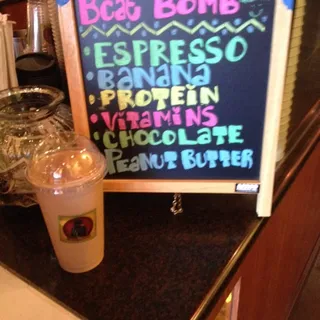 Bcat Bomb
• ESPRESSO
• BANANA
• PROTEIN
• VITAMINS
• CHOCOLATE
• PEANUT BUTTER